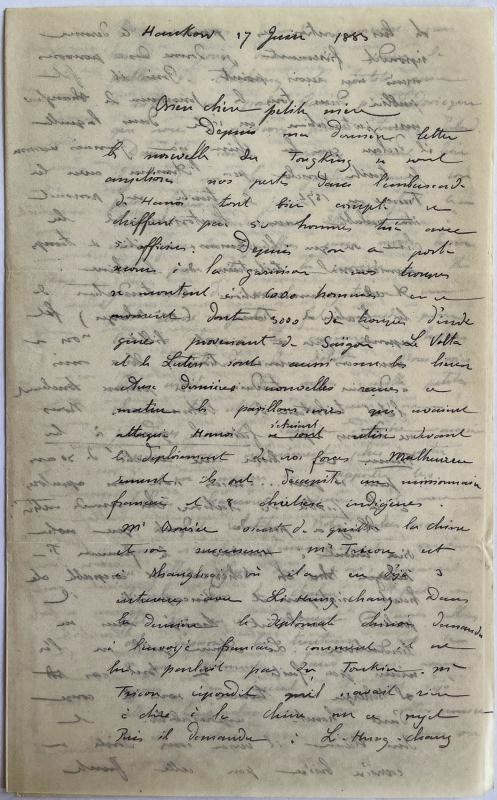 Hankow 17 Juin 1883
Mon chère petite mère
Depuis ma dernière lettre
les nouvelles du Tongking se sont
améliorées nos pertes dans l'embuscade
de Hanoi tout bien compti se
chiffrent par 50 hommes tués avec
5 officiers. Depuis on a porté
secours à la garnison nos troupes
se montent à 6000 hommes en ce
moment dont 3000 de troupes d'indi
gènes provenant de Saigon Le Volta
et le Lutin sont aussi sur les lieux
Aux dernières nouvelles reçues ce
matin les pavillons noirs qui avaient
attaqué Hanoi s'étaient retirés devant
le déploiement de nos forces Malheureu
sement ils ont décapité un missionnaire
français et 8 chrétiens indigènes.
Mr Bourée vient de quitter la chine
et son successeur Mr Tricou est
à Shanghai où il a eu déjà 3
entrevues avec Li-Hung-chang Dans
la dernière le diplomate chinois demanda
à l'envoyé français comment il ne
lui parlait pas du Tonkin. Mr
Tricou répondit qu'il n'avait rien
à dire à la chine sur ce sujet
Puis il demanda à Li-Hung-chang